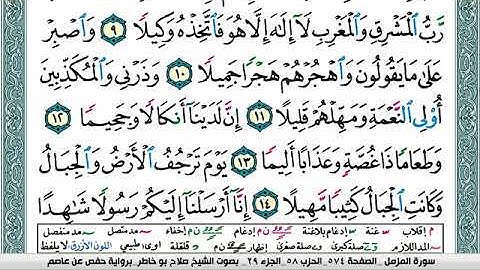 رَّبُّ ٱلْمَشْرِقِ وَٱلْمَغْرِبِ لَآ إِلَٰهَ إِلَّا هُوَ فَٱتَّخِذْهُ وَكِيلًا ٩ وَٱصْبِرْ
عَلَىٰ مَا يَقُولُونَ وَٱهْجُرْهُمْ هَجْرًا جَمِيلًا ١٠ وَذَرْنِى وَٱلْمُكَذِّبِينَ
أُو۟لِى ٱلنَّعْمَةِ وَمَهِّلْهُمْ قَلِيلًا ١١ إِنَّ لَدَيْنَآ أَنكَالًا وَجَحِيمًا ١٢
وَطَعَامًا ذَا غُصَّةٍ وَعَذَابًا أَلِيمًا ١٣ يَوْمَ تَرْجُفُ ٱلْأَرْضُ وَٱلْجِبَالُ
وَكَانَتِ ٱلْجِبَالُ كَثِيبًا مَّهِيلًا ١٤ إِنَّآ أَرْسَلْنَآ إِلَيْكُمْ رَسُولًا شَٰهِدًا
م إقلاب ن م إدغام بلاغنة ن م إخفاء مد متصل مد منفصل
المد اللازم صلة كبرى صلة صغرى إظهار ن م قلقلة طبيعي اللون الأزرق لا يلفظ
سورة المزمل - الصفحة ٥٧٤ - الحزب ٥٨ - الجزء ٢٩ - بصوت الشيخ صلاح بو خاطر - برواية حفص عن عاصم